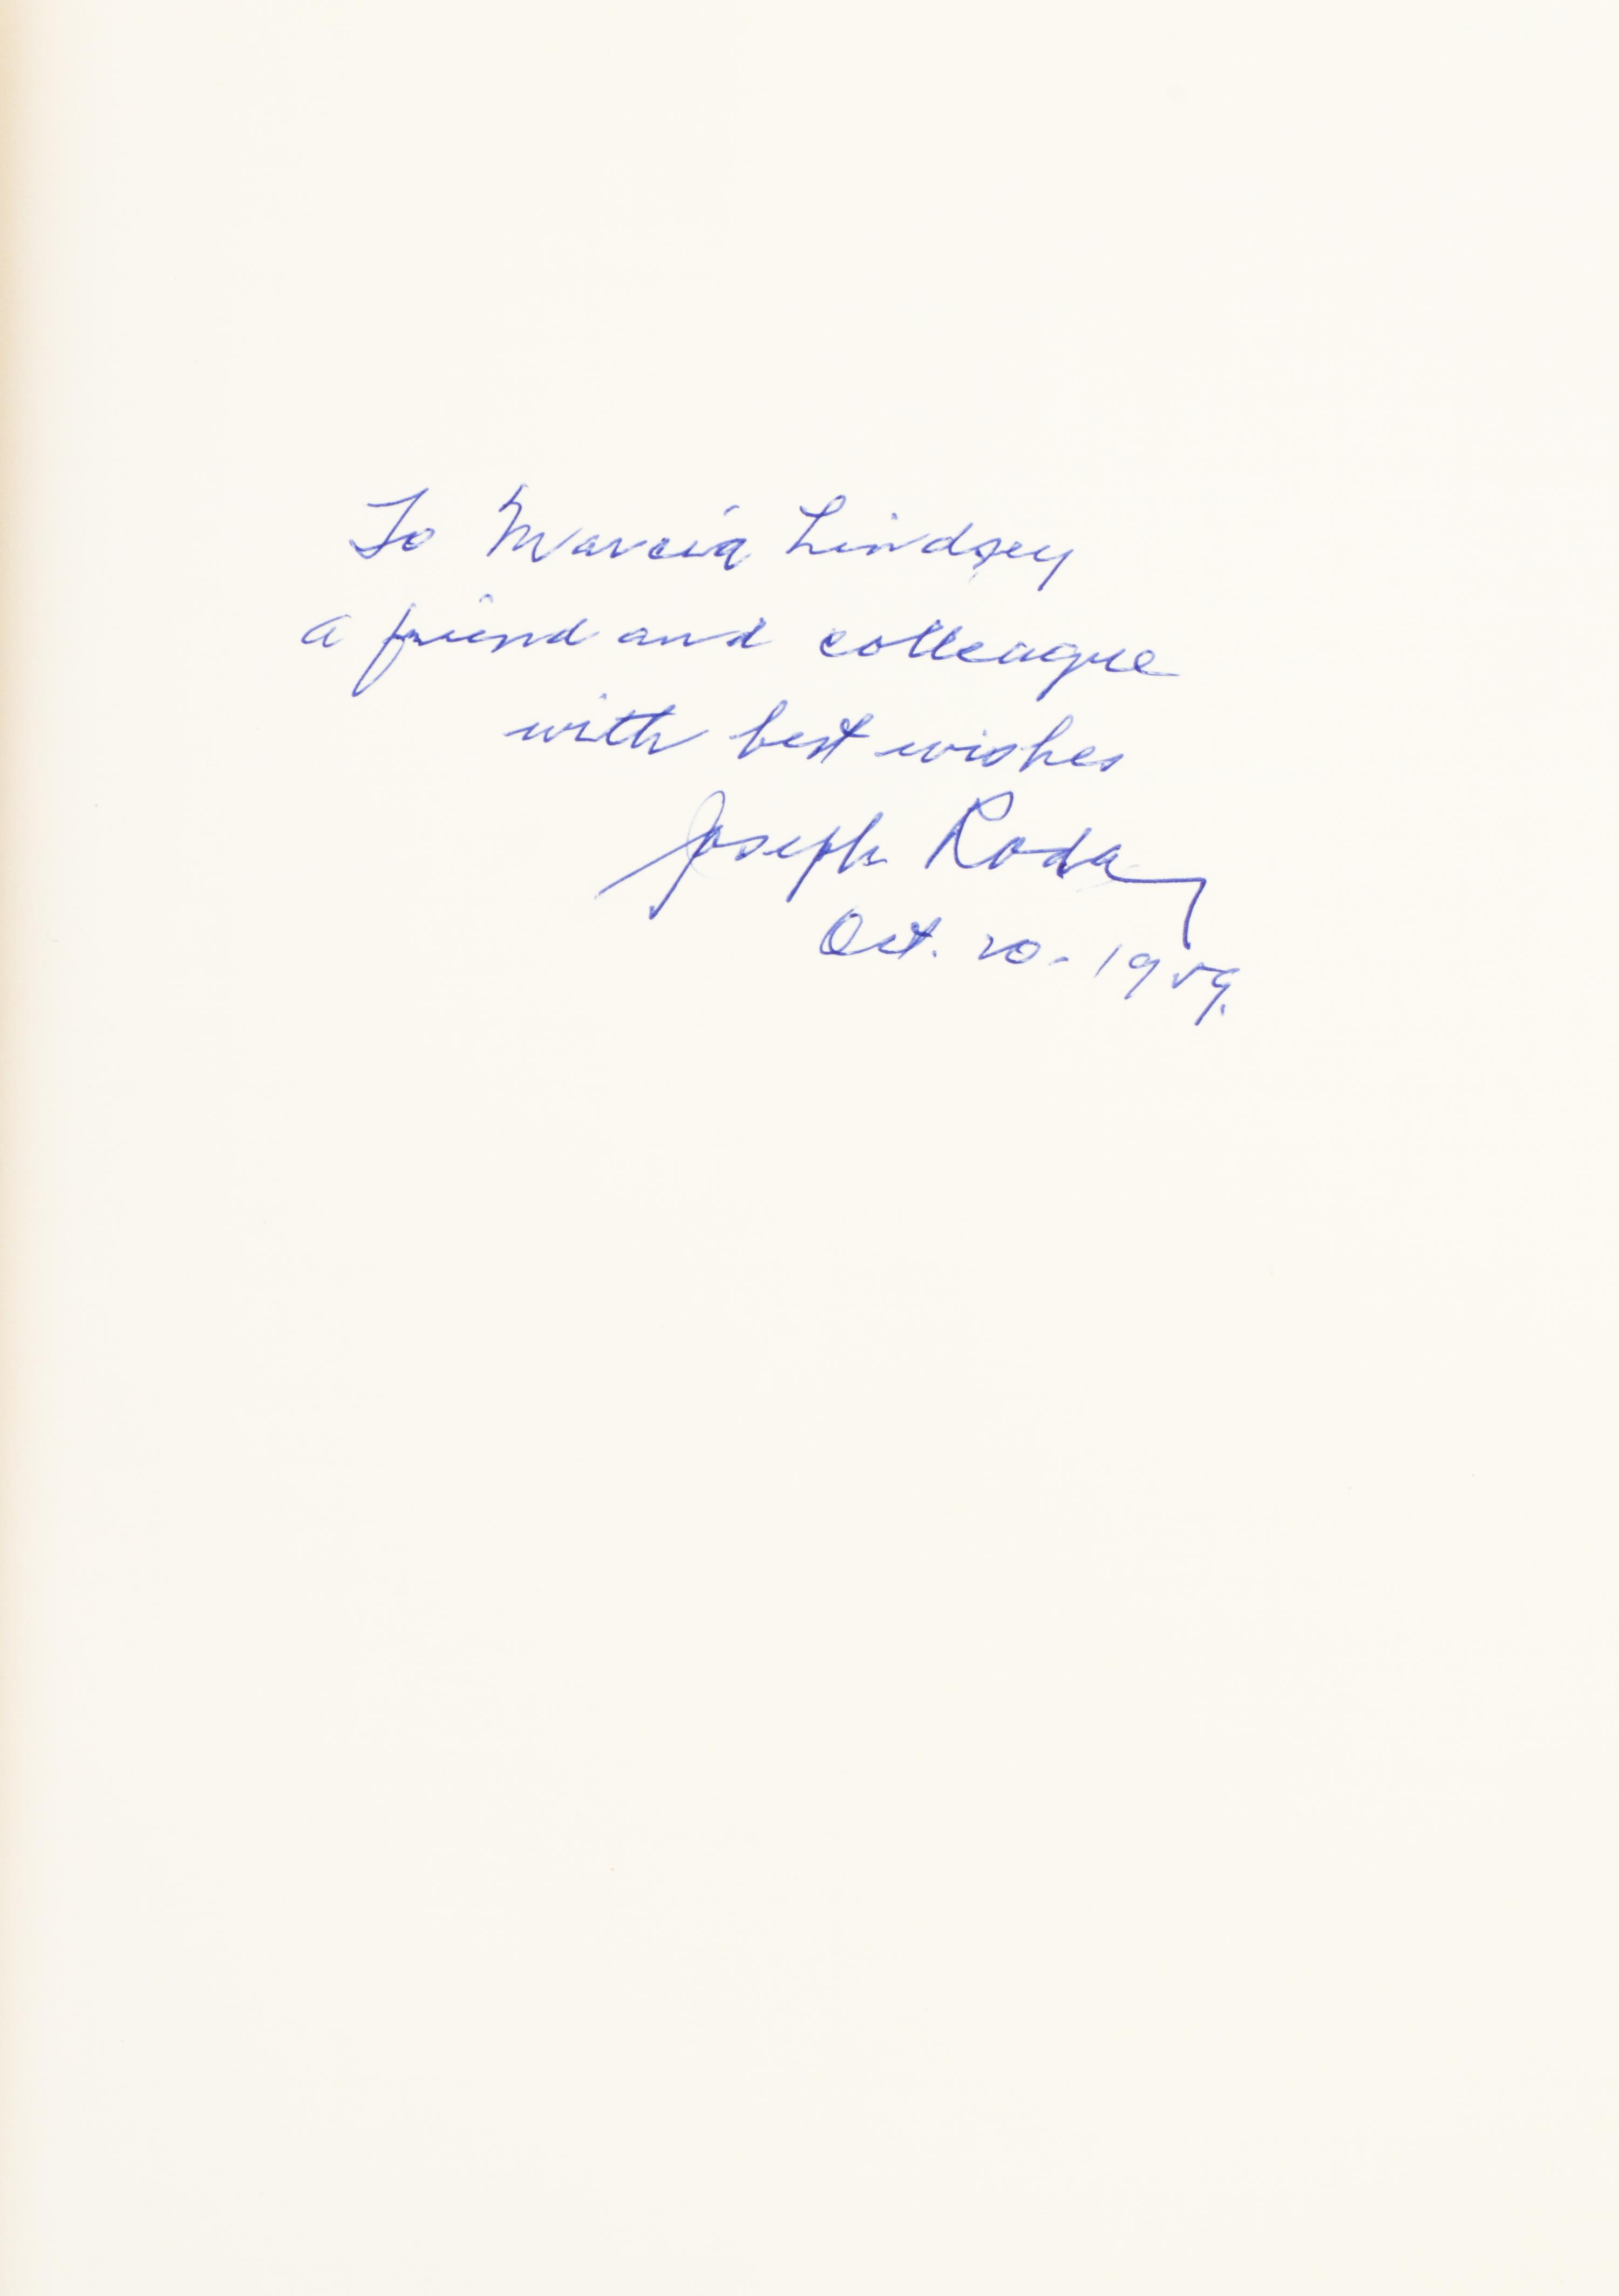 To Marcia Lindsey
a friend and colleague
with best wishes
Joseph Roda
Oct. 20 - 1959.